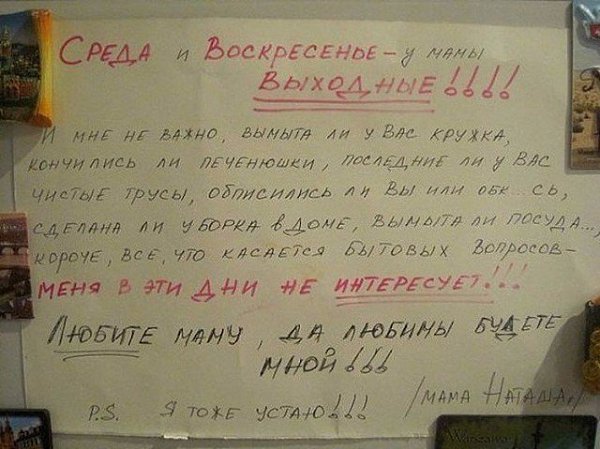 Среда и Воскресенье – у мамы
выходные!!!!
И мне не важно, вымыта ли у Вас кружка,
кончились ли печенюшки, последние ли у Вас
чистые трусы, обписились ли Вы или обк...сь,
сделана ли уборка в доме, вымыта ли посуда...,
короче, всё, что касается бытовых вопросов –
меня в эти дни не интересует!!!
Любите маму, да любимы будете
мной!!!
/мама Наташа/
P.S. Я тоже устаю!!!
Warszawa